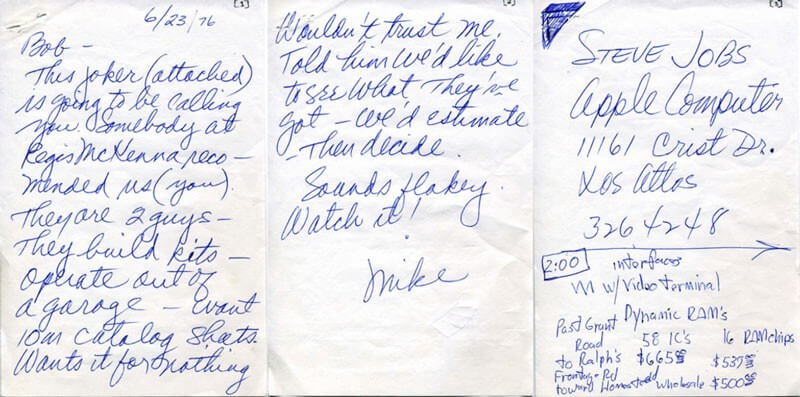 [1]
6/23/76
Bob -
This joker (attached)
is going to be calling
you. Somebody at
Regis McKenna reco-
mended us (you).
They are 2 guys -
They build kits -
operate out of
a garage - want
10m catalog sheets.
Wants it for nothing
[2]
Wouldn't trust me.
Told him we'd like
to see what they've
got - we'd estimate
- Then decide.
Sounds flakey.
Watch it!
Mike
[3]
STEVE JOBS
Apple Computer
11161 Crist Dr.
Los Altos
326 4248
2:00 interfaces
w/Video Terminal
Dynamic RAM's
58 IC's 16 RAM chips
$665 $537
wholesale $500
Past Grant
Road
to Ralph's
Frontage Rd
toward Homestead